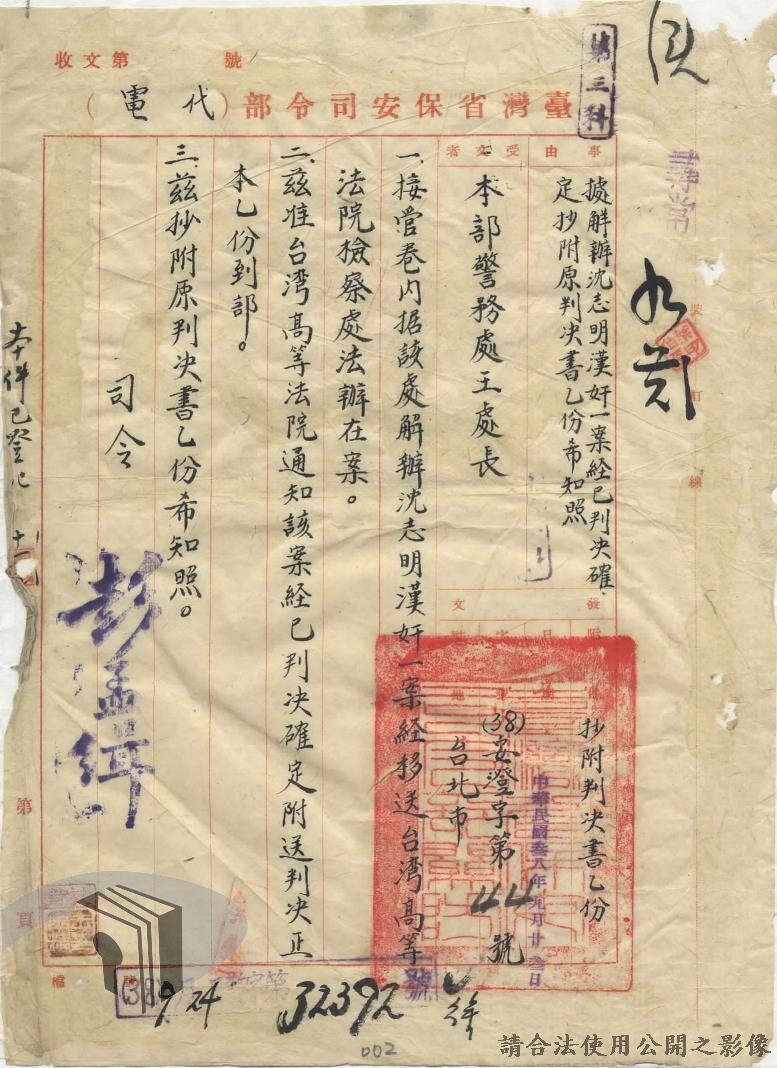 收文第 號
臺灣省保安司令部(代電)
第三科
事由
據解辦沈志明漢奸一案経已判决確
定抄附原判决書乙份希知照
受文者
本部警務處王處長
發文
抄附判决書乙份
中華民國叁八年九月廿叁日
(38)安澄字第44號
台北市
一、接管卷内据該處解辦沈志明漢奸一案経移送台湾高等
法院檢察處法辦在案。
二、茲准台湾高等法院通知該案経已判决確定附送判决正
本乙份到部。
三、茲抄附原判决書乙份希知照。
司令
彭孟緝
本件已登记
裝
訂
線
第
頁
檔
(38) 9 24 32392
號
002
請合法使用公開之影像